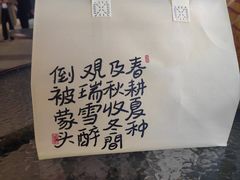 春耕夏种
及秋收冬間
观瑞雪醉
倒被蒙头